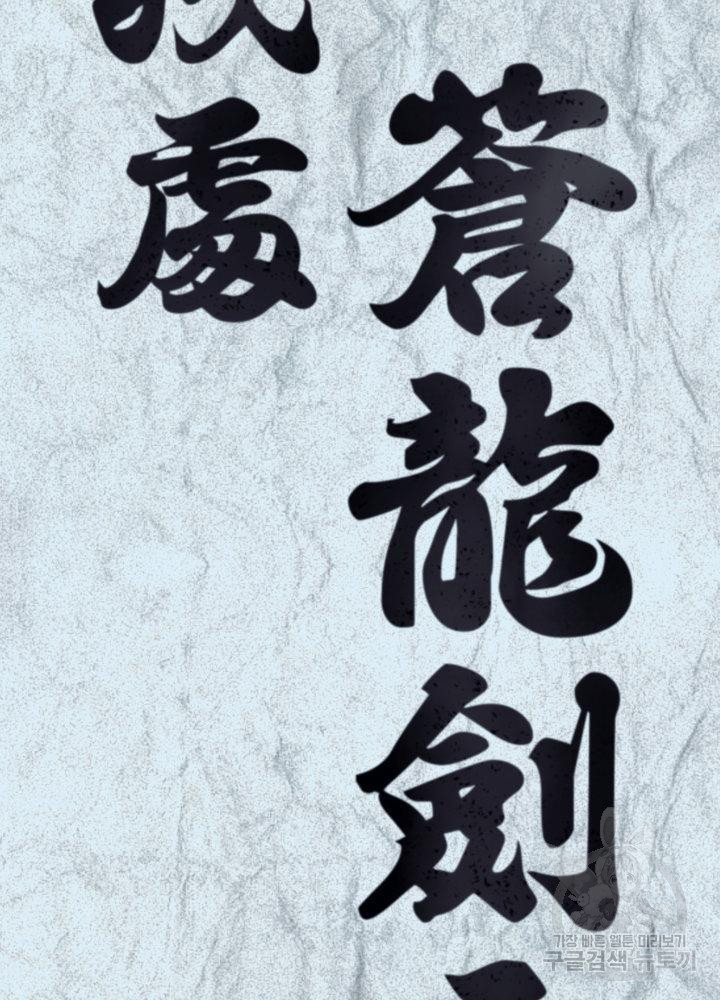 蒼龍劍
處
가장 빠른 웹툰 미리보기
구글검색 뉴토끼